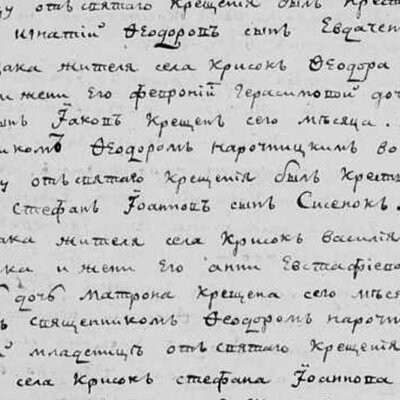 у отъ святаго Крещенія былъ Крест
Игнатій Ѳеодоровъ сынъ Евдачен
зака жителя села Крисокъ Ѳеодора
и жени Его Февроніи Герасимовой доч
сынъ Іаковъ Крещенъ сего мѣсяца
икомъ Ѳеодоромъ Нарочницкимъ во
у отъ святаго Крещенія былъ Крест
Стефанъ Іоанновъ сынъ Сисенок
зака жителя села Крисокъ Василія
ка и жени Его Анни Евстафіево
дочь Матрона Крещена сего мѣся
ъ священникомъ Ѳеодоромъ Нарочн
младеницѣ отъ святаго Крещенія
села Крисокъ Стефана Іоаннова